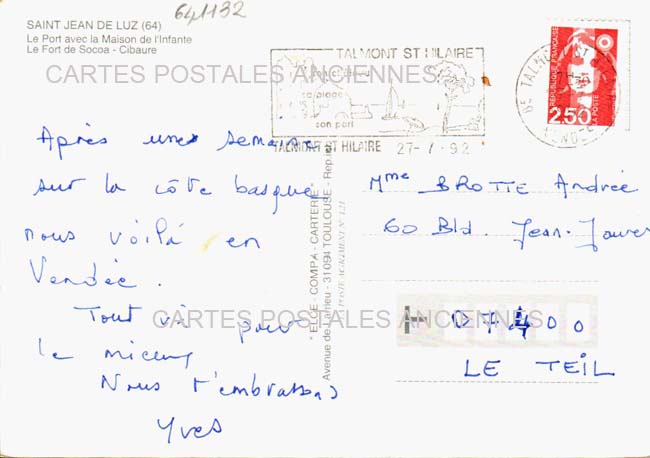 641132
SAINT JEAN DE LUZ (64)
Le Port avec la Maison de l'Infante
Le Fort de Socoa - Cibaure
TALMONT ST HILAIRE
sa plage
son port
TALMONT ST HILAIRE 27-7-92
RÉPUBLIQUE FRANÇAISE
LA POSTE
2,50
CARTES POSTALES ANCIENNES
Après une semaine
sur la côte basque
nous voilà en
Vendée.
Tout va pour
le mieux
Nous t'embrassons
Yves
" ELCE - COMPA - CARTERIE "
31094 TOULOUSE
Mme BROTTE Andrée
60 Bld. Jean-Jaurès
07400
LE TEIL
CARTES POSTALES ANCIENNES